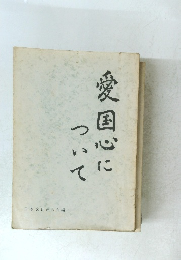 愛国心に
ついて